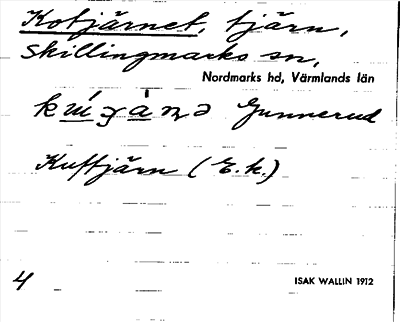 Kotjärnet, tjärn,
Skillingmarks sn,
Nordmarks hd, Värmlands län
Gunnerud
Kuftjärn (E.k.)
4
ISAK WALLIN 1912